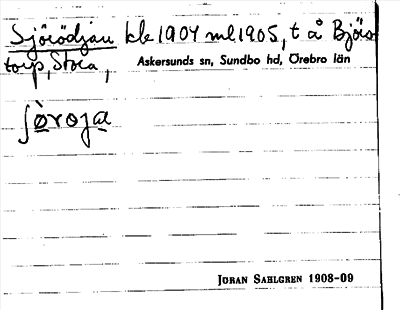 Sjörödjan kb 1904 ml 1905, t å Björs
torp, Stora,
Askersunds sn, Sundbo hd, Örebro län
ʃòroja
JÖRAN SAHLGREN 1908-09